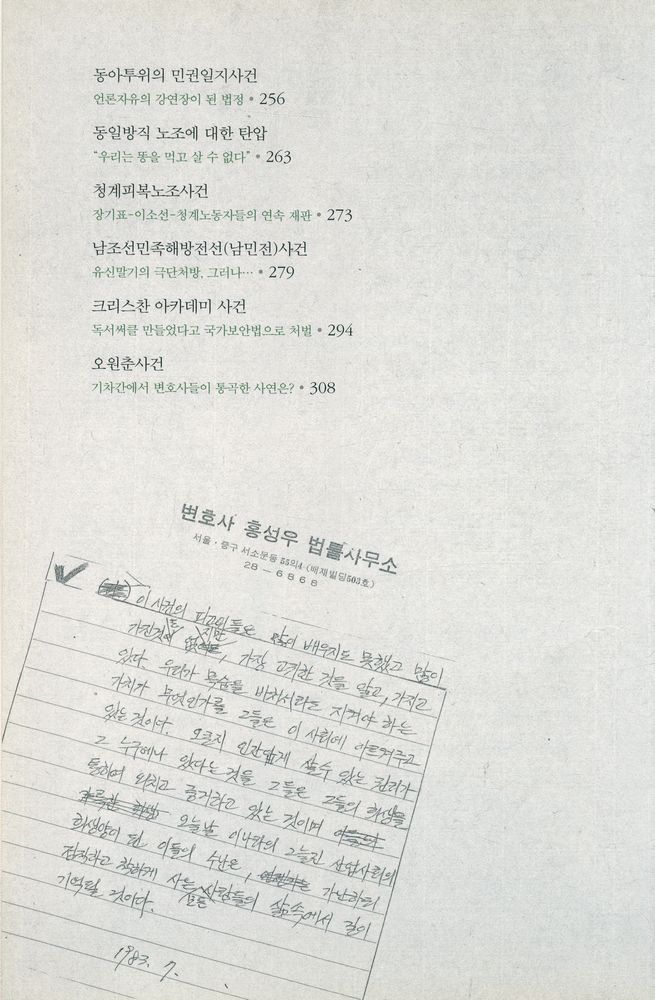 동아투위의 민권일지사건
언론자유의 강연장이 된 법정 • 256
동일방직 노조에 대한 탄압
“우리는 똥을 먹고 살 수 없다” • 263
청계피복노조사건
장기표-이소선-청계노동자들의 연속 재판 • 273
남조선민족해방전선(남민전)사건
유신말기의 극단처방, 그러나… • 279
크리스찬 아카데미 사건
독서써클 만들었다고 국가보안법으로 처벌 • 294
오원춘사건
기차간에서 변호사들이 통곡한 사연은? • 308
변호사 홍성우 법률사무소
서울·중구 서소문동 55의4 (배재빌딩503호)
28-6868
이 사건의 피고인들은 많이 배우지도 못했고 많이
가진것도 없지만, 가장 고귀한 것을 알고, 가지고
있다. 우리가 목숨을 바쳐서라도 지켜야 하는
가치가 무엇인가를 그들은 이 사회에 가르쳐주고
있는 것이다. 오로지 인간답게 살수 있는 권리가
그 누구에나 있다는 것을 그들은 그들의 희생을
통하여 외치고 증거하고 있는 것이며
오늘날 이나라의 그늘진 산업사회의
희생양이 된 이들의 수난은, 가난하되
정직하고 착하게 사는 모든 사람들의 삶속에서 길이
기억될 것이다.
1983. 7.